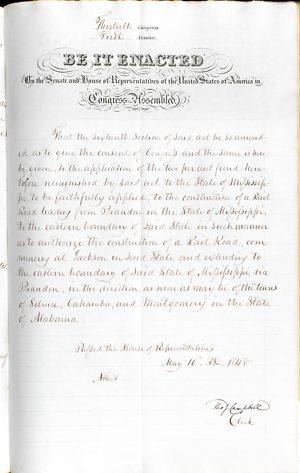 Thirtieth Congress
First Session
BE IT ENACTED
By the Senate and House of Representatives of the United States of America in
Congress Assembled
That the sixteenth section of said act be so amend
ed as to give the consent of Congress and the same is here
by given, to the application of the two per cent fund here
tofore relinquished by said act to the State of Mississip
pi to be faithfully applied, to the construction of a Rail
Road leading from Brandon in the State of Mississippi
to the eastern boundary of said State in such manner
as to authorize the construction of a Rail Road, com
mencing at Jackson in said State and extending to
the eastern boundary of said State of Mississippi via
Brandon, in the direction as near as may be of the towns
of Selma, Cahawba, and Montgomery in the State
of Alabama
Passed the House of Representatives
May 10th AD 1848
Attest
Tho J Campbell
Clerk